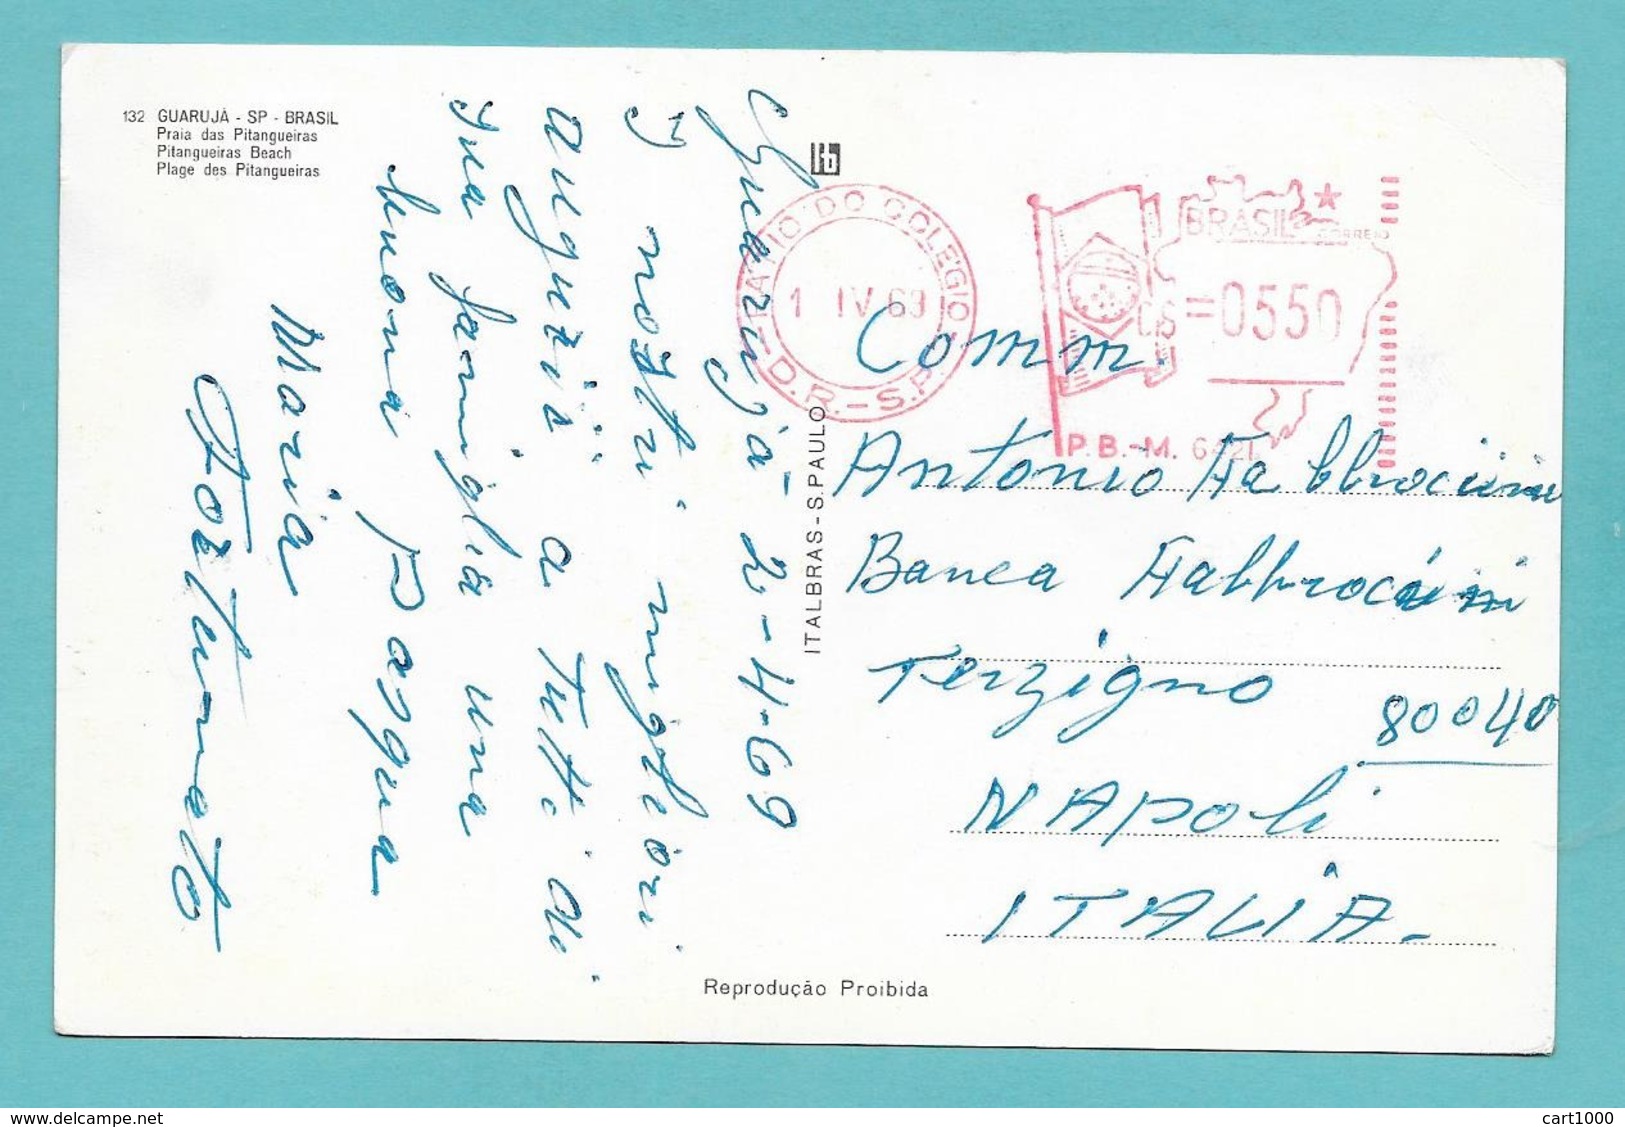 132 GUARUJÁ - SP - BRASIL
Praia das Pitangueiras
Pitangueiras Beach
Plage des Pitangueiras
Guarujá - 2-4-69
I nostri migliori
auguzii a tutti di
sua famiglia una
buona Pasqua
Maria
Fortunato
ITALBRAS - S. PAULO
PATIO DO COLEGIO
1 IV 69
D.R. - S.P.
BRASIL
CORREIO
=0550
P.B.-M. 6421
Comm.
Antonio Fabbrocini
Banca Fabbrocini
Terzigno
80040
NAPOli
ITALIA.
Reprodução Proibida
www.delcampe.net
cart1000